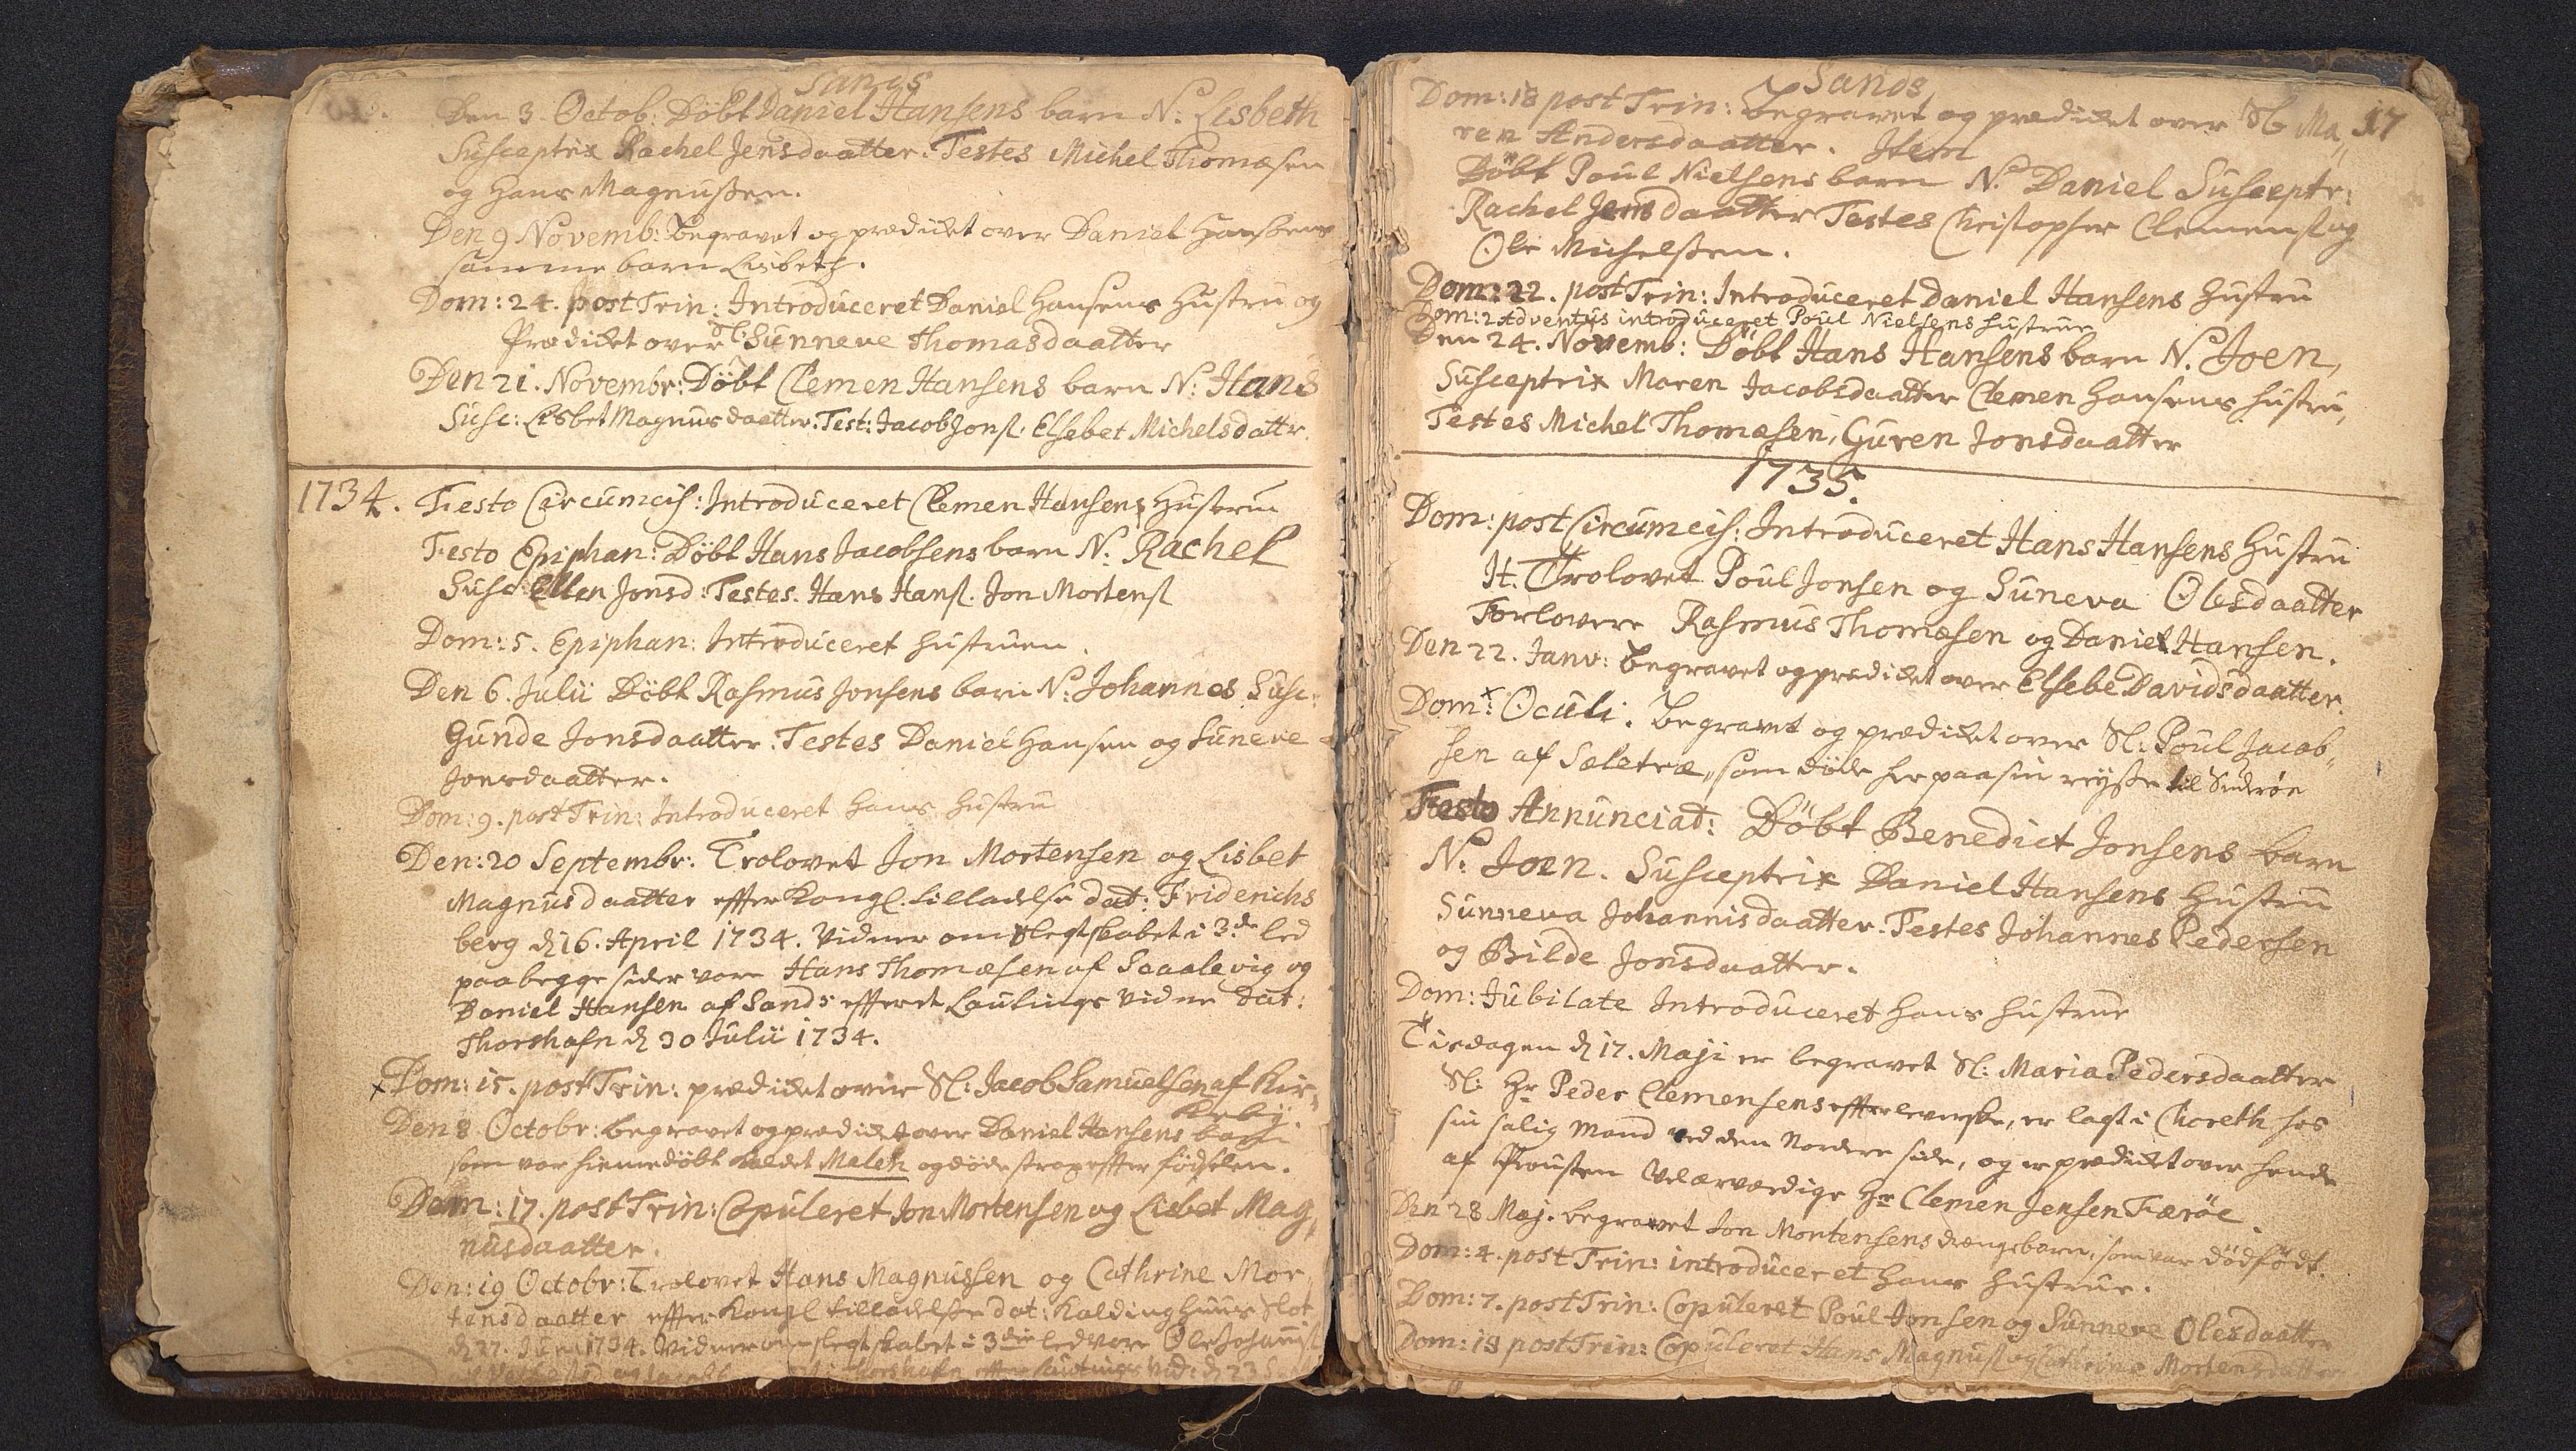 Sands
Den 3. Octob: Döbt Daniel Hansens barn N: Lisbeth
Susceptrix Rachel Jensdaatter. Testes Michel Thomæsen
og Hans Magnussen.
Den 9 Novemb: Begravet og prædicket over Daniel Hansens
samme barn Lisbeth.
Dom: 24. post Trin: Introduceret Daniel Hansens Hustru og
Prædicket over Sl: Sunneve Thomasdaatter
Den 21. Novembr: Döbt Clemen Hansens barn N: Hans
Susc: Lisbet Magnusdaatter. Test: Jacob Jons. Elsebet Michelsdattr.
1734. Festo Circumcis: Introduceret Clemen Hansens Hustru
Festo Epiphan: Döbt Hans Jacobsens barn N: Rachel
Susc Ellen Jonsd: Testes. Hans Hans. Jon Mortens
Dom: 5. Epiphan: Introduceret Hustruen.
Den 6. Julii Döbt Rasmus Jonsens barn N: Johannes Susc:
Gunde Jonsdaatter. Testes Daniel Hansen og Suneve
Jonsdaatter.
Dom: 9. post Trin: Introduceret hans Hustru
Den: 20 Septembr: Trolovet Jon Mortensen og Lisbet
Magnusdaatter effter Kongl. tilladelse dat: Friderichs
berg d 16. April 1734. Vidner om slegtskabet i 3de led
paa begge sider vare Hans Thomæsen af Saalevig og
Daniel Hansen af Sands effter et Laultings Vidne dat:
Thorshafn d 30 Julii 1734.
x Dom: 15. post Trin: prædicket over Sl: Jacob Samuelsen af Kir,
keby.
Den 8 Octobr: begravet og prædicket over Daniel Hansens barn
som var hiemedöbt kaldet Maleh og döde strax effter födselen.
Dom: 17. post Trin: Copuleret Jon Mortensen og Lisbet Mag,
nusdaatter.
Den: 19 Octobr: Trolovet Hans Magnussen og Cathrine Mor
tensdaatter effter Kongl tilladelse dat: Koldinghuus Slot
d 27. Jun 1734. Vidner om slegtskabet i 3die led vare Ole Johannis
og Jacob Thorshafn effter Laultings Vid: d 23
Sands 17
Dom: 18 post Trin: Begravet og prædicket over Sl Ma,
ren Andersdaatter. Item
Döbt Poul Nielsens barn N. Daniel Susceptr:
Rachel Jensdaatter Testes Christopher Clemens og
Ole Michelssen.
Dom: 22. post Trin: Introduceret Daniel Hansens Hustru
Dom: 2 Adventus introduceret Poul Nielsens hustrue
Den 24. Novemb: Döbt Hans Hansens barn N. Joen,
Susceptrix Maren Jacobsdaatter Clemen Hansens hustru,
Testes Michel Thomæsen, Guren Jonsdaatter
1735.
Dom: post Circumcis: Introduceret Hans Hansens Hustru
It. Trolovet Poul Jonsen og Suneva Olesdaatter
Forlovere Rasmus Thomæsen og Daniel Hansen.
Den 22. Janv: Begravet og prædicket over Elsebe Davidsdaatter.
Dom: x Oculi. Begravet og prædicket over Sl: Poul Jacob,
sen af Sæletræ, som döde her paa sin reysse til Suderöe
Festo Annunciat: Döbt Benedict Jonsens barn
N. Joen. Susceptrix Daniel Hansens Hustru
Sunneva Johannisdaatter. Testes Johannes Pedersen
og Bilde Jonsdaatter.
Dom: Jubilate Introduceret hans hustrue
Tisdagen d 17. Maji er begravet Sl: Maria Pedersdaatter
Sl: Hr Peder Clemensens effterleverske, er lagt i Choreth hos
sin salig Mand ved den Nordere side, og er prædicket over hende
af Prousten Velærværdige Hr Clemen Jensen Færöe.
Den 28 Maj. begravet Jon Mortensens drengebarn, som var dödfödt.
Dom: 4. post Trin: introduceret hans hustrue.
Dom: 7. post Trin: Copuleret Poul Jonsen og Sunneve Olesdaatter
Dom: 18 post Trin: Copuleret Hans Magnus og Cathrine Mortensdatter